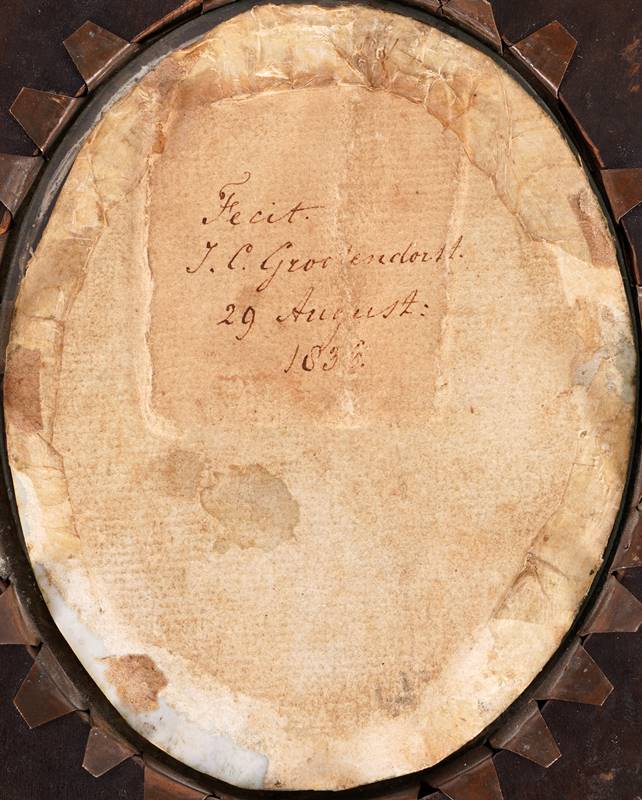 Fecit.
J. C. Grootendorst.
29 August:
1836.